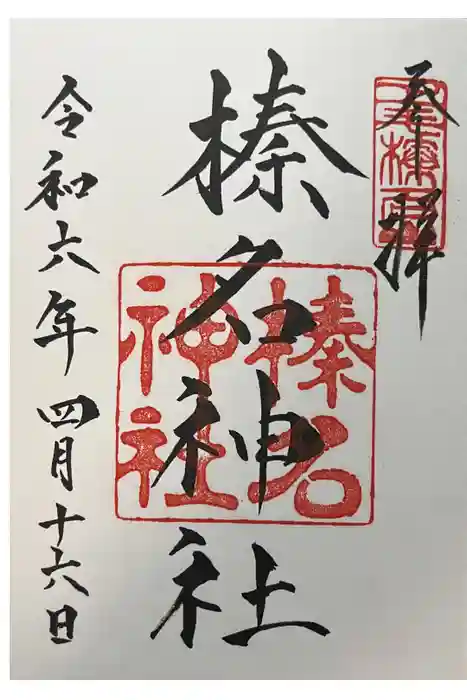 奉拜
榛名神社
榛名
神社
令和六年四月十六日